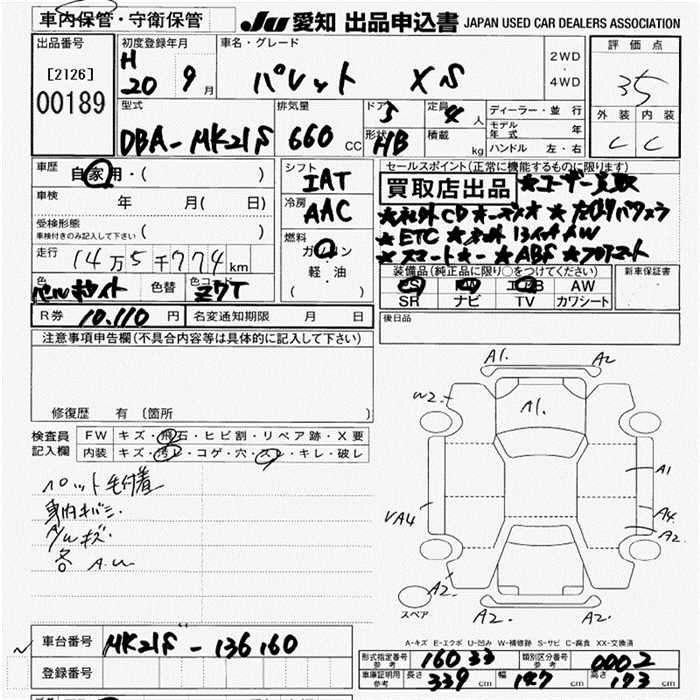 車内保管・守衛保管 JU 愛知 出品申込書 JAPAN USED CAR DEALERS ASSOCIATION
出品番号
[2126]
00189
初度登録年月
H
20 9月
車名・グレード
パレット XS
2WD
・
4WD
評価点
3.5
外装 内装
C C
型式
DBA-MK21S
排気量
660 CC
ドア
5
形状
HB
定員
4人
積載 kg
ディーラー・並行
モデル年式 年
ハンドル 左・右
車歴
自家用・( )
車検
年 月( 日)
受検形態
車検付きのみ記入して下さい ( )
走行
14万5千774km
色
パールホワイト
色替
色コード
Z7T
シフト
IAT
冷房
AAC
燃料
ガソリン
軽・油
( )
セールスポイント(正常に機能するものに限ります)
買取店出品 ★ユーザー買取
★社外CDオーディオ
★ETC ★社外13インチAW
★スマートキー ★ABS
装備品(純正品に限り○をつけてください)
PS PW エアB AW
SR ナビ TV カワシート
新車保証書
後日品
R券 10.110円 名変通知期限 月 日
注意事項申告欄(不具合内容等は具体的に記入して下さい)
修復歴 有 〔箇所 〕
検査員
記入欄
FW キズ・飛石・ヒビ割・リペア跡・X要
内装 キズ・汚レ・コゲ・穴・スレ・キレ・破レ
ペット毛付着
車内キバミ.
各 A.U
A1. A2
W2.
A1.
A1
YA4
A4
A2.
A2.
A2. A2.
スペア
A-キズ E-エクボ U-凹み W-補修跡 S-サビ C-腐食 XX-交換済
車台番号 MK21S-136160
登録番号
形式指定番号
参考
16033
類別区分番号
参考
0002
車庫証明用
参考
長さ 339cm 幅 147cm 高さ 173cm